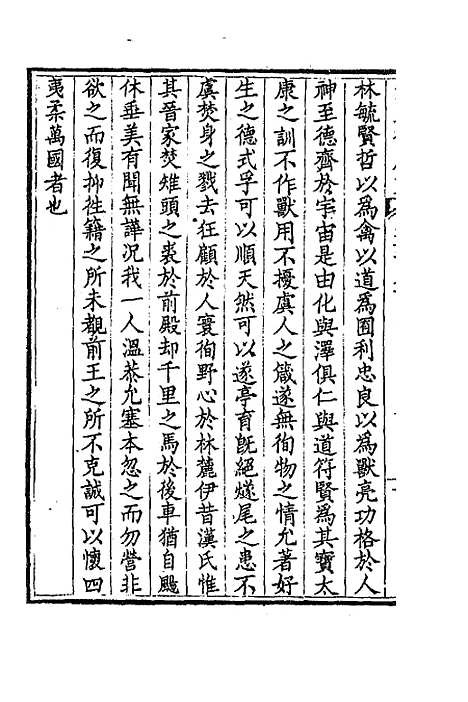 林毓賢哲以為禽以道為囿利忠良以為獸亮功格於人
神至德齊於宇宙是由化與澤俱仁與道符賢為其寶太
康之訓不作獸用不擾虞人之箴遂無徇物之情允著好
生之德式孚可以順天然可以遂亭育旣絕燧尾之患不
虞焚身之戮去往顧於人寰徇野心於林麓伊昔漢氏惟
其晉家焚雉頭之裘於前殿却千里之馬於後車猶自颺
休垂美有聞無譁況我一人溫恭允塞本忽之而勿營非
欲之而復抑牲籍之所未觀前王之所不克誠可以懷四
夷柔萬國者也